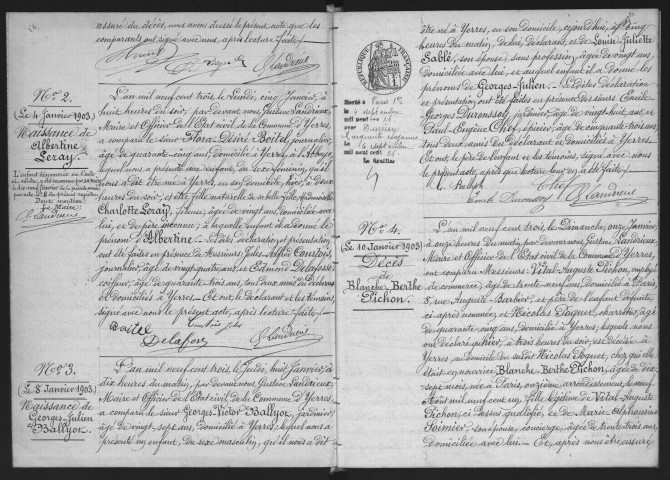 assuré du décès, nous avons dressé le présent acte que les
comparants ont signé avec nous, après lecture faite./.
G. Landrieux
N° 2.
Le 4 Janvier 1903
Naissance de
Albertine
Leray.
G. Landrieux
L'an mil neuf cent trois, le Lundi, cinq Janvier, à
huit heures du soir, par devant nous, Gustave Landrieux,
Maire et Officier de l'Etat civil de la Commune d'Yerres,
a comparu le sieur Flora-Désiré Boitel, journalier,
âgé de quarante-cinq ans, domicilié à Yerres, à l'Abbaye,
lequel nous a présenté un enfant, du sexe féminin, qu'il
nous a dit être né à Yerres, en son domicile, hier, à deux
heures du soir, et être fille naturelle de Mademoiselle
Charlotte Leray, âgée de vingt ans, domiciliée avec
lui, et de père inconnu, à laquelle enfant il a donné le
prénom d'Albertine. Lesdites déclaration et présentation
ont été faites en présence des Messieurs Jules Alfred Courtois,
journalier, âgé de vingt-quatre ans, et Edmond Delafosse,
coiffeur, âgé de quarante-trois ans, tous deux amis du déclarant
et domiciliés à Yerres. Et ont, le déclarant et les témoins,
signé avec nous le présent acte, après lecture faite./.
Boitel Courtois Jules
Delafosse G. Landrieux
N° 3.
Le 8 Janvier 1903
Naissance de
Georges-Julien
Ballyot.
L'an mil neuf cent trois, le Jeudi, huit Janvier, à
dix heures du matin, par devant nous, Gustave Landrieux,
Maire et Officier de l'Etat civil de la Commune d'Yerres,
a comparu le sieur Georges-Victor Ballyot, jardinier,
âgé de vingt-sept ans, domicilié à Yerres, lequel nous a
présenté un enfant, du sexe masculin, qu'il nous a dit
être né à Yerres, en son domicile, aujourd'hui, à cinq
heures du matin, de lui, déclarant, et de Louise Juliette
Sablé, son épouse, sans profession, âgée de vingt ans,
domiciliée avec lui, et auquel enfant il a donné les
prénoms de Georges-Julien. Lesdites déclaration
et présentation ont été faites en présence des sieurs Emile
Georges Duronssoy, jardinier, âgé de vingt-huit ans, et
Paul-Eugène Chef, épicier, âgé de quarante-trois ans,
tous deux amis du déclarant et domiciliés à Yerres.
Et ont, le père de l'enfant et les témoins, signé avec nous
le présent acte, après que lecture leur en a été faite./.
G. Ballyot Chef
Emile Duronssoy G. Landrieux
RÉPUBLIQUE FRANÇAISE
N° 4.
Le 10 Janvier 1903
Décès
de
Blanche-Berthe
Pichon.
L'an mil neuf cent trois, le Dimanche, onze Janvier,
à onze heures du matin, par devant nous, Gustave Landrieux,
Maire et Officier de l'Etat civil de la Commune d'Yerres,
ont comparu Messieurs: Vital-Auguste Pichon, employé
de commerce, âgé de trente-neuf ans, domicilié à Paris,
8, rue Auguste-Barbier, et père de l'enfant défunte
ci-après nommée, et Nicolas Poquet, charretier, âgé
de quarante-cinq ans, domicilié à Yerres; lesquels nous
ont déclaré qu'hier, à trois heures du soir, est décédée à
Yerres, au domicile du sieur Nicolas Poquet, chez qui elle
était en nourrice, Blanche-Berthe Pichon, âgée de dix
sept mois, née à Paris, onzième arrondissement, le neuf
Août mil neuf cent un, fille légitime de Vital-Auguste
Pichon, ci-dessus qualifié, et de Marie-Alphonsine
Soimier, son épouse, concierge, âgée de trente-trois ans,
domiciliée avec lui. Et, après nous être assuré